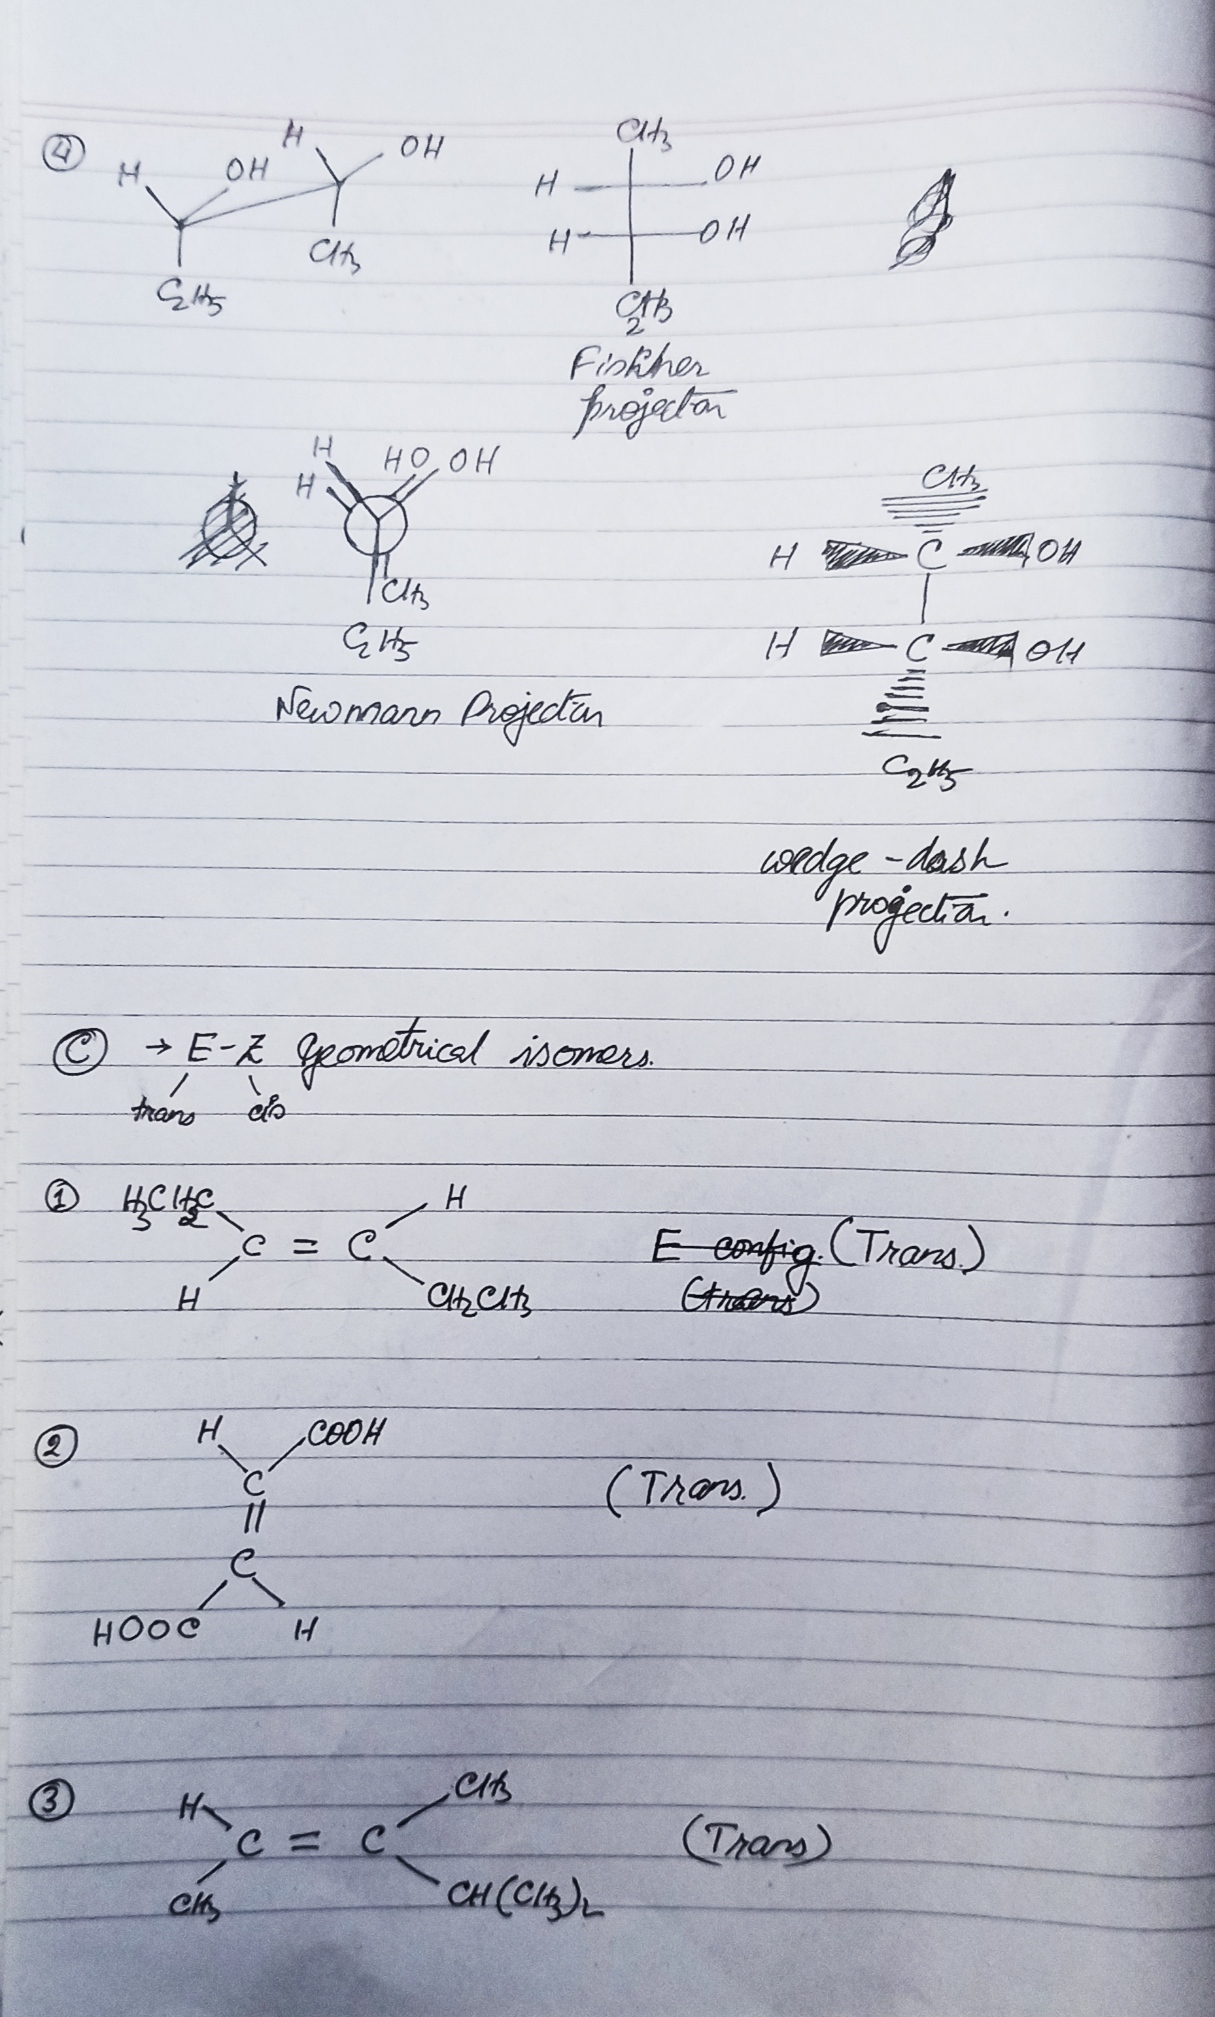 ④
H OH H OH
C2H5 CH3
CH3
H OH
H OH
C2H5
Fiskher
projection
H H HO OH
CH3
C2H5
Newmann Projection
CH3
H C OH
H C OH
C2H5
wedge-dash
projection.
Ⓒ → E-Z Geometrical isomers.
trans cis
① H3CH2C H
C = C
H CH2CH3
E config. (Trans.)
(trans)
② H COOH
C
||
C
HOOC H
(Trans.)
③ H CH3
C = C
CH3 CH(CH3)2
(Trans)